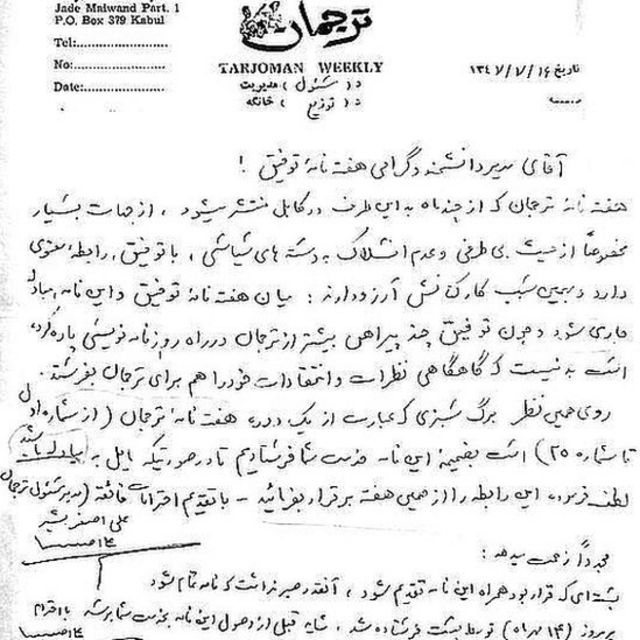 Jade Maiwand Part. 1
P.O. Box 379 Kabul
Tel:........................
No:........................
Date:.....................
ترجمان
TARJOMAN WEEKLY
د ( مسئول ) مدیریت
د ( توزیع ) خانگه
تاریخ ۱۶ / ۷ / ۱۳۴۷
آقای مدیر دانشمند و گرامی هفته نامهٔ توفیق !
هفته نامهٔ ترجمان که از چند ماه به این طرف در کابل منتشر میشود ، از جهات بسیار
مخصوصاً از حیث بی طرفی و عدم انسلاک به دسته های سیاسی ، با توفیق ، رابطهٔ معنوی
دارد و بهمین سبب کارکنانش آرزو دارند : میان هفته نامهٔ توفیق و این نامه مبادله
جاری شود و چون توفیق چند پیراهن بیشتر از ترجمان در راه روزنامه نویسی پاره کرده
است بد نیست که گاهگاهی نظرات و انتقادات خود را هم برای ترجمان بفرستد .
روی همین نظر برگ سبزی که عبارت از یک دوره هفته نامهٔ ترجمان ( از شماره اول
تا شماره ۲۵ ) است بضمیمهٔ این نامه خدمت شما فرستادیم تا در صورتیکه مایل به مبادله باشید
لطف فرموده این رابطه را از همین هفته برقرار بفرمائید - با تقدیم احترامات فائقه ( مدیر مسئول ترجمان
علی اصغر بشیر
مجدداً زحمت میدهد :
بسته ای که قرار بود همراه این نامه تقدیم شود ، آنقدر صبر نداشت که نامه تمام شود
پریروز ( ۱۴ مهر ماه ) توسط پست فرستاده شد ، شاید قبل از وصول این نامه بخدمت شما برسد با احترام